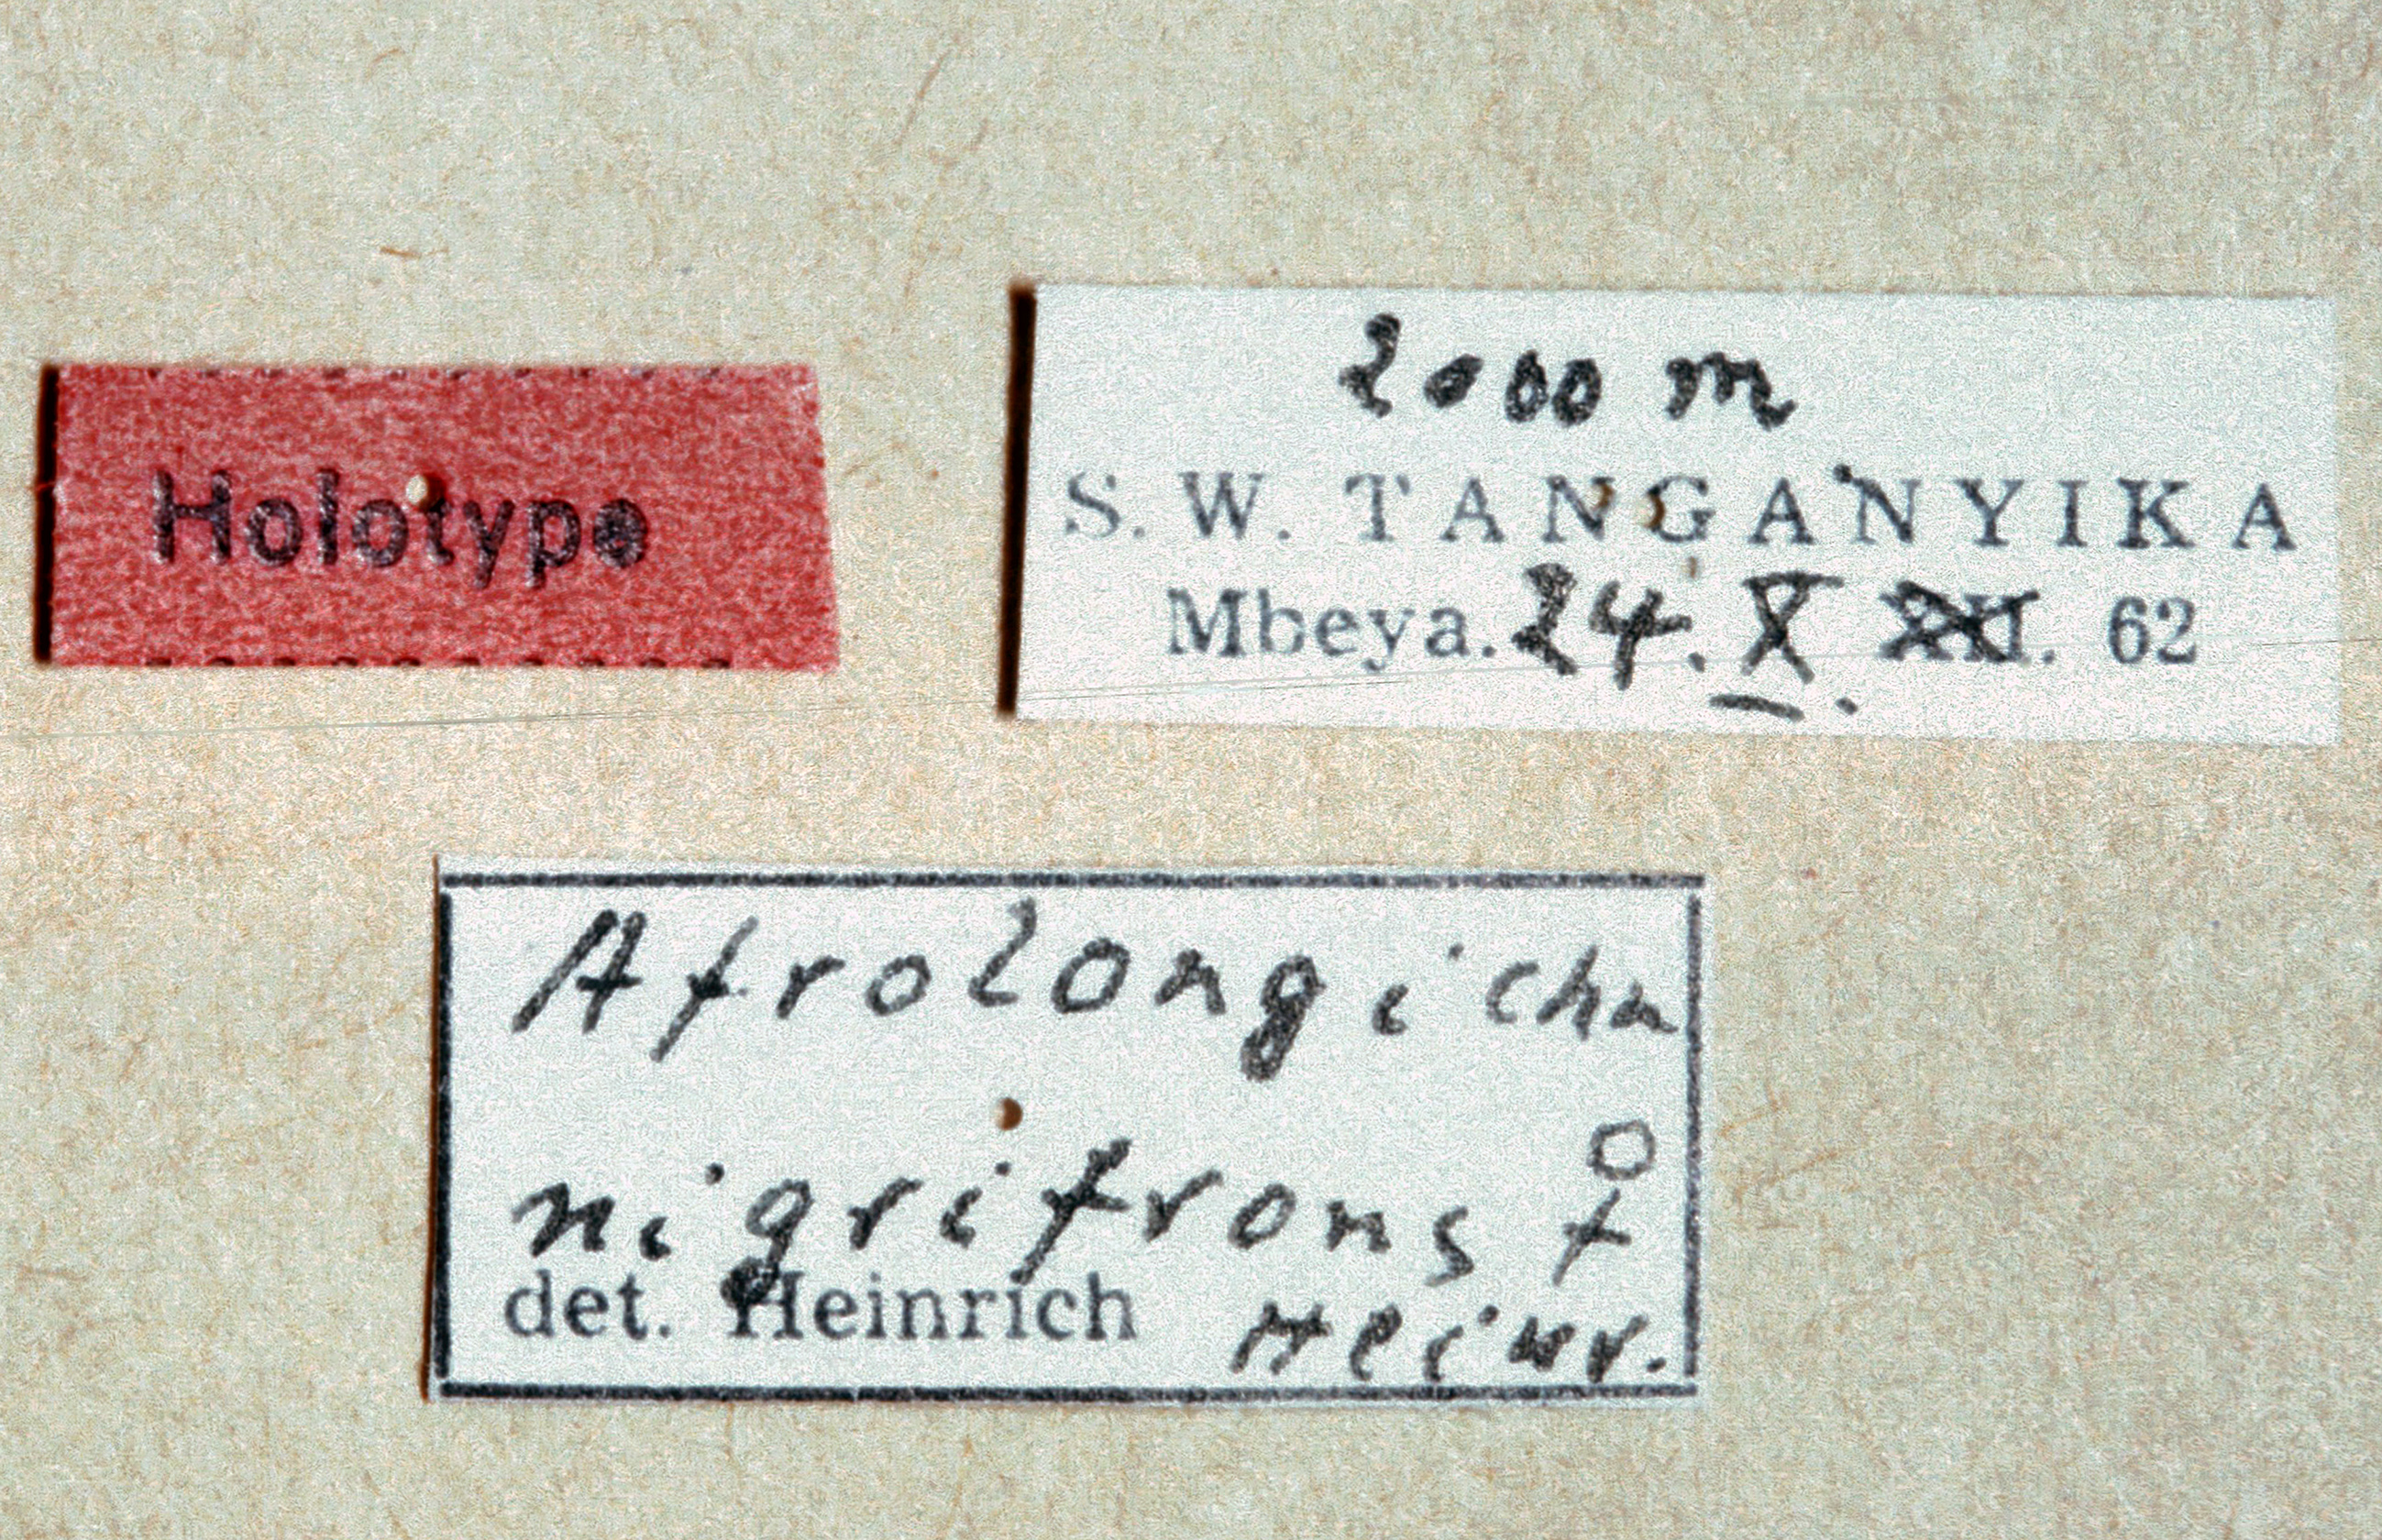 Holotype
2000 m
S. W. TANGANYIKA
Mbeya. 24. X. 62
Afrolongichn
nigrifrons ♀
det. Heinrich Heinr.